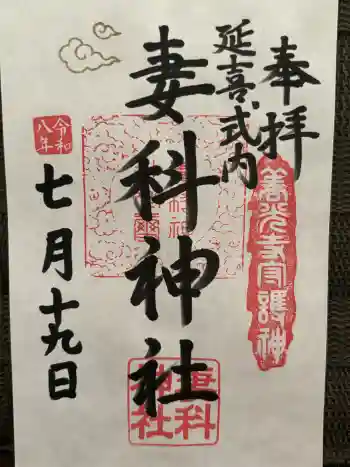 奉拝
延喜式内
善光寺守護神
妻科神社
妻科
神社
令和
八年
七月十九日